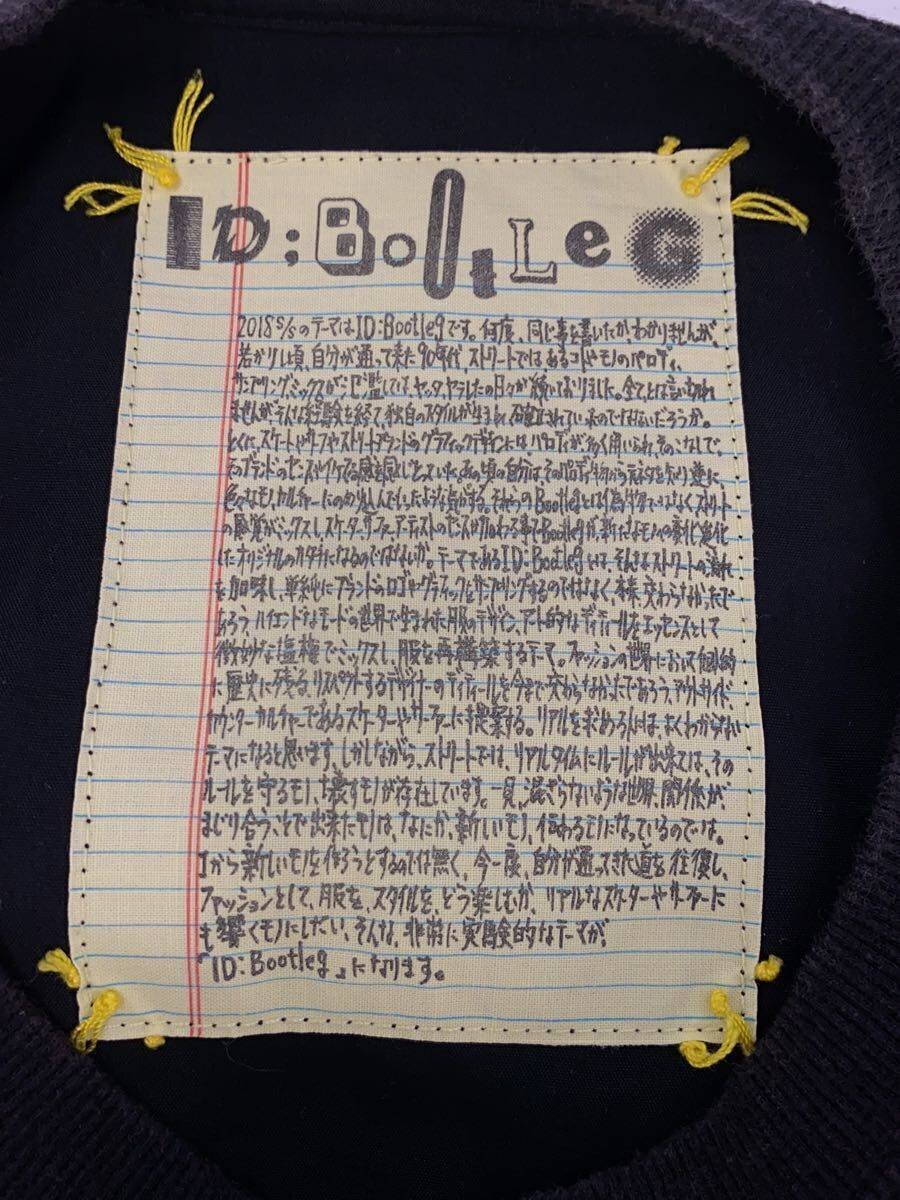 ID;BootLeG
2018 s/sのテーマはID:Bootlegです。何度、同じ事を書いたか、わかりませんが、
若かりし頃、自分が通って来た90年代、ストリートではあるコトやモノのパロディ、
サンプリング、ミックスが氾濫していて、ヤッタ、ヤラレタの日々が続いておりました。全てとは言い切れ
ませんがそんな経験を経て、独自のスタイルが生まれ、確立されていったのではないだろうか。
とくに、スケートやサーフやストリートブランドのグラフィックデザインには、パロディが多く用いられ、そのこなしで、
そのブランドのセンスやイケてる感を
色々なモノ、カルチャーにのめり込んでいったような気がする。それらのBootlegとは偽物ではなくストリート
の感覚がミックスし、スケーター、サーファー、アーティストのセンスが加わる事でBootlegが、新たなモノへの変化、進化
したオリジナルのカタチになるのではないか。テーマであるID:Bootlegは、そんなストリートの流れ
を加味し、単純にブランドのロゴやグラフィックをサンプリングするのではなく、本来、交わらなかったで
あろう、ハイエンドなモードの世界で生まれた服のデザイン、アート的なディティールをエッセンスとして
微妙な塩梅でミックスし、服を再構築するテーマ。ファッションの世界において個人的
に歴史に残る、リスペクトするデザイナーのディティールを今まで交わらなかったであろう、アウトサイド、
カウンターカルチャーであるスケーターやサーファーに提案する。リアルを求める人には、よくわからない
テーマになると思います、しかしながら、ストリートでは、リアルタイムにルールが出来ては、その
ルールを守るモノ、壊すモノが存在しています。一見、混ざらないような世界、関係が、
まじり合うことで出来たモノは、なにか、新しいモノ、伝わるモノになっているのでは。
1から新しいモノを作ろうとするのでは無く、今一度、自分が通ってきた道を往復し、
ファッションとして、服を、スタイルを、どう楽しむか、リアルなスケーターやサーファーに
も響くモノにしたい、そんな、非常に実験的なテーマが、
「ID:Bootleg」になります。